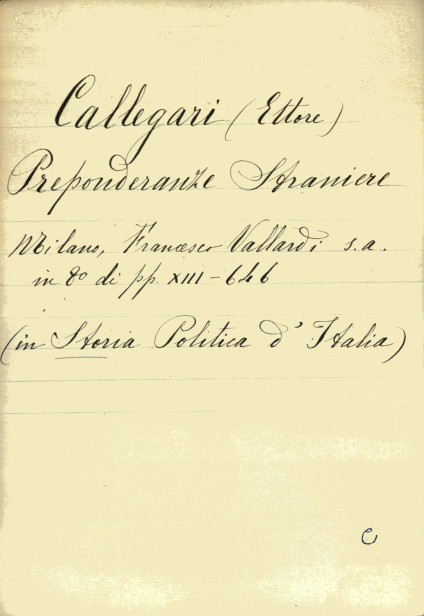 Callegari (Ettore)
Preponderanze Straniere
Milano, Francesco Vallardi s.a.
in 8º di pp. XIII-646
(in Storia Politica d'Italia)
C